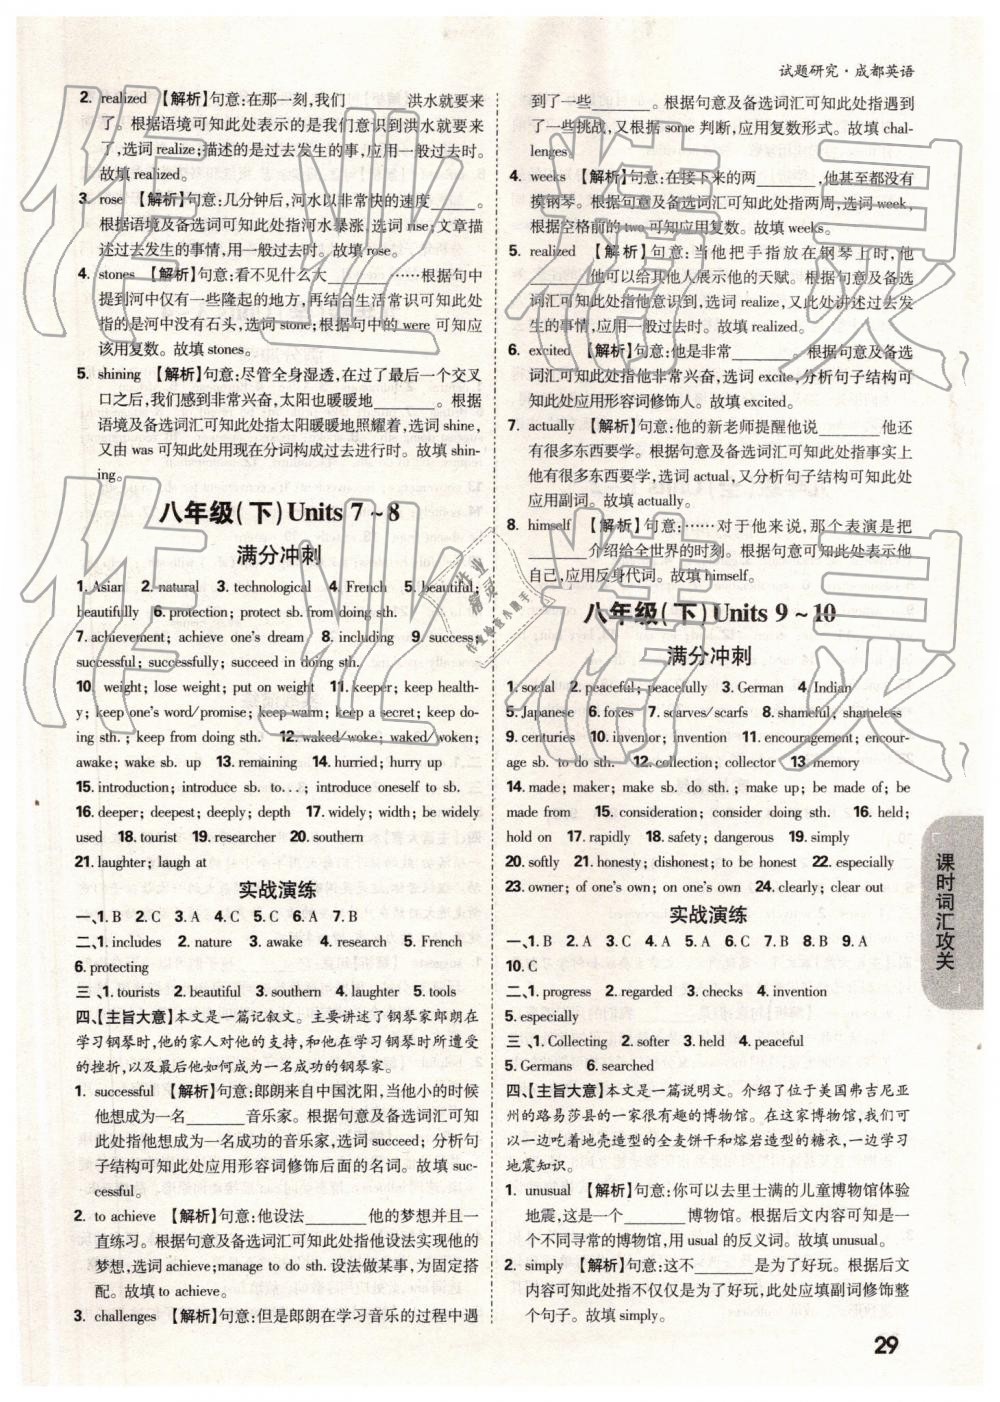 试题研究·成都英语
2. realized 【解析】句意:在那一刻,我们________洪水就要来
了。根据语境可知此处表示的是我们意识到洪水就要来
了,选词 realize;描述的是过去发生的事,应用一般过去时。
故填 realized。
3. rose 【解析】句意:几分钟后,河水以非常快的速度______。
根据语境及备选词汇可知此处指河水暴涨,选词 rise;文章描
述过去发生的事情,用一般过去时。故填 rose。
4. stones 【解析】句意:看不见什么大________……根据句中
提到河中仅有一些隆起的地方,再结合生活常识可知此处
指的是河中没有石头,选词 stone;根据句中的 were 可知应
该用复数。故填 stones。
5. shining 【解析】句意:尽管全身湿透,在过了最后一个交叉
口之时,我们感到非常兴奋,太阳也暖暖地________。根据
语境及备选词汇可知此处指太阳暖暖地照耀着,选词 shine,
又由 was 可知此处用现在分词构成过去进行时。故填 shin-
ing。
八年级(下)Units 7~8
满分冲刺
1. Asian 2. natural 3. technological 4. French 5. beautiful;
beautifully 6. protection; protect sb. from doing sth.
7. achievement; achieve one's dream 8. including 9. success;
successful; successfully; succeed in doing sth.
10. weight; lose weight; put on weight 11. keeper; keep health-
y; keep one's word/promise; keep warm; keep a secret; keep do-
ing sth. ; keep from doing sth. 12. waked/woke; waked/woken;
awake; wake sb. up 13. remaining 14. hurried; hurry up
15. introduction; introduce sb. to...; introduce oneself to sb.
16. deeper; deepest; deeply; depth 17. widely; width; be widely
used 18. tourist 19. researcher 20. southern
21. laughter; laugh at
实战演练
一、1. B 2. C 3. A 4. C 5. C 6. A 7. B
二、1. includes 2. nature 3. awake 4. research 5. French
6. protecting
三、1. tourists 2. beautiful 3. southern 4. laughter 5. tools
四、【主旨大意】本文是一篇记叙文。主要讲述了钢琴家郎朗在
学习钢琴时,他的家人对他的支持,和他在学习钢琴时遭受的
的挫折,以及最后他如何成为一名成功的钢琴家。
1. successful 【解析】句意:郎朗来自中国沈阳,当他小的时候
他想成为一名________音乐家。根据句意及备选词汇可知
此处指他想成为一名成功的音乐家,选词 succeed; 分析句
子结构可知此处应用形容词修饰后面的名词。故填 suc-
cessful。
2. to achieve 【解析】句意:他设法________他的梦想并且一
直练习。根据句意及备选词汇可知此处指他设法实现他的
梦想,选词 achieve;manage to do sth. 设法做某事,为固定搭
配。故填 to achieve。
3. challenges 【解析】句意:但是郎朗在学习音乐的过程中遇
到了一些________。根据句意及备选词汇可知此处指遇到
了一些挑战,又根据 some 判断,应用复数形式。故填 chal-
lenges。
4. weeks 【解析】句意:在接下来的两________,他甚至都没有
摸钢琴。根据句意及备选词汇可知此处指两周,选词 week,
根据空格前的 two 可知应用复数。故填 weeks。
5. realized 【解析】句意:当他把手指放在钢琴上时,
他________他可以给其他人展示他的天赋。根据句意及备选
词汇可知此处指他意识到,选词 realize,又此处讲述过去发
生的事情,应用一般过去时。故填 realized。
6. excited 【解析】句意:他是非常________。根据句意及备选
词汇可知此处指他非常兴奋,选词 excite,分析句子结构可
知此处应用形容词修饰人。故填 excited。
7. actually 【解析】句意:他的新老师提醒他说________他还
有很多东西要学。根据句意及备选词汇可知此处指事实上
他有很多东西要学,选词 actual,又分析句子结构可知此处
应用副词。故填 actually。
8. himself 【解析】句意:……对于他来说,那个表演是把
________介绍给全世界的时刻。根据句意可知此处表示他
自己,应用反身代词。故填 himself。
八年级(下)Units 9~10
满分冲刺
1. social 2. peaceful; peacefully 3. German 4. Indian
5. Japanese 6. foxes 7. scarves/scarfs 8. shameful; shameless
9. centuries 10. inventor; invention 11. encouragement; encour-
age sb. to do sth. 12. collection; collector 13. memory
14. made; maker; make sb. do sth. ; make up; be made of; be
made from 15. consideration; consider doing sth. 16. held;
hold on 17. rapidly 18. safety; dangerous 19. simply
20. softly 21. honesty; dishonest; to be honest 22. especially
23. owner; of one's own; on one's own 24. clearly; clear out
实战演练
一、1. B 2. A 3. C 4. A 5. C 6. C 7. B 8. B 9. A
10. C
二、1. progress 2. regarded 3. checks 4. invention
5. especially
三、1. Collecting 2. softer 3. held 4. peaceful
5. Germans 6. searched
四、【主旨大意】本文是一篇说明文。介绍了位于美国弗吉尼亚
州的路易莎县的一家很有趣的博物馆。在这家博物馆,你可
以一边吃着地壳造型的全麦饼干和熔岩造型的糖衣,一边学习
地震知识。
1. unusual 【解析】句意:你可以去里士满的儿童博物馆体验
地震,这是一个________博物馆。根据后文内容可知是一
个不同寻常的博物馆,用 usual 的反义词。故填 unusual。
2. simply 【解析】句意:这不________是为了好玩。根据后文
内容可知此处指不仅仅是为了好玩,此处应填副词修饰整
个句子。故填 simply。
课时词汇攻关
29
作业精灵
作业精灵
作业精灵
作业检查小助手